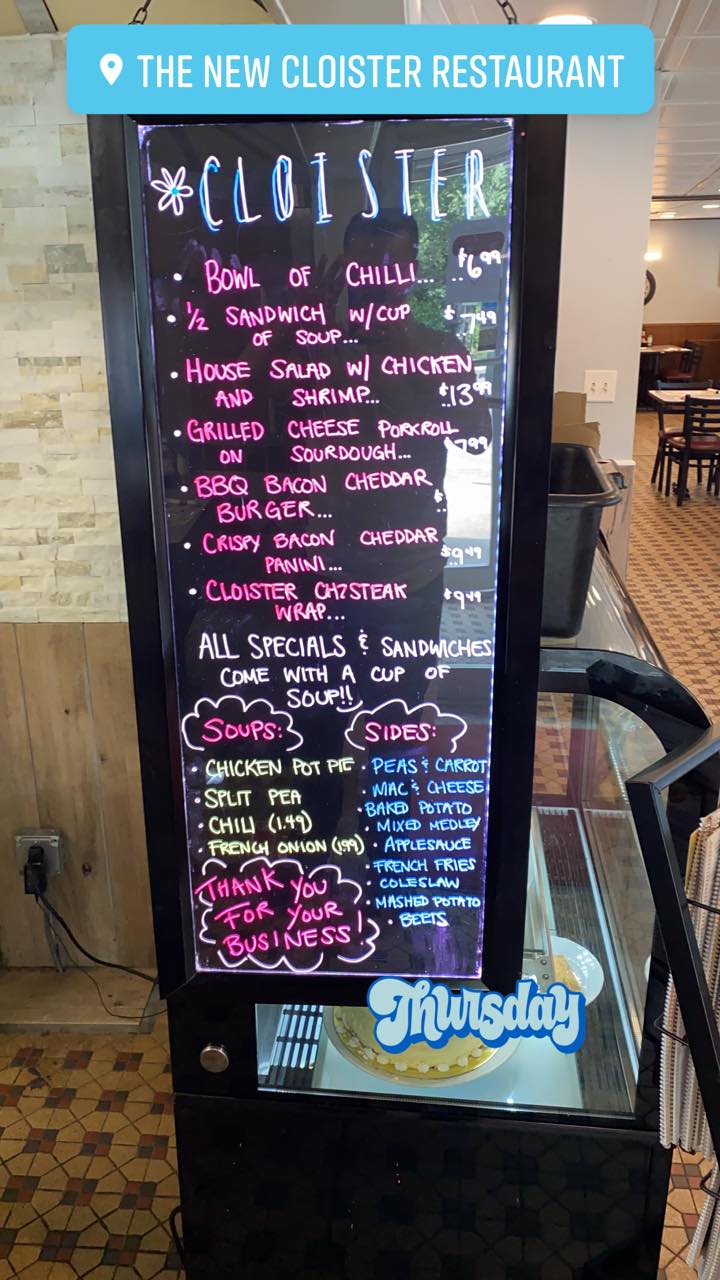 THE NEW CLOISTER RESTAURANT
CLOISTER
• BOWL OF CHILLI... $6.99
• 1/2 SANDWICH W/CUP $7.49
OF SOUP...
• HOUSE SALAD W/ CHICKEN
AND SHRIMP... $13.99
• GRILLED CHEESE PORKROLL
ON SOURDOUGH... $7.99
• BBQ BACON CHEDDAR
BURGER... $
• CRISPY BACON CHEDDAR
PANINI... $9.49
• CLOISTER CH7STEAK $9.49
WRAP...
ALL SPECIALS & SANDWICHES
COME WITH A CUP OF
SOUP!!
SOUPS:
• CHICKEN POT PIE
• SPLIT PEA
• CHILI (1.49)
• FRENCH ONION (1.99)
SIDES:
• PEAS & CARROT
• MAC & CHEESE
• BAKED POTATO
• MIXED MEDLEY
• APPLESAUCE
• FRENCH FRIES
• COLESLAW
• MASHED POTATO
• BEETS
THANK YOU
FOR YOUR
BUSINESS!
Thursday